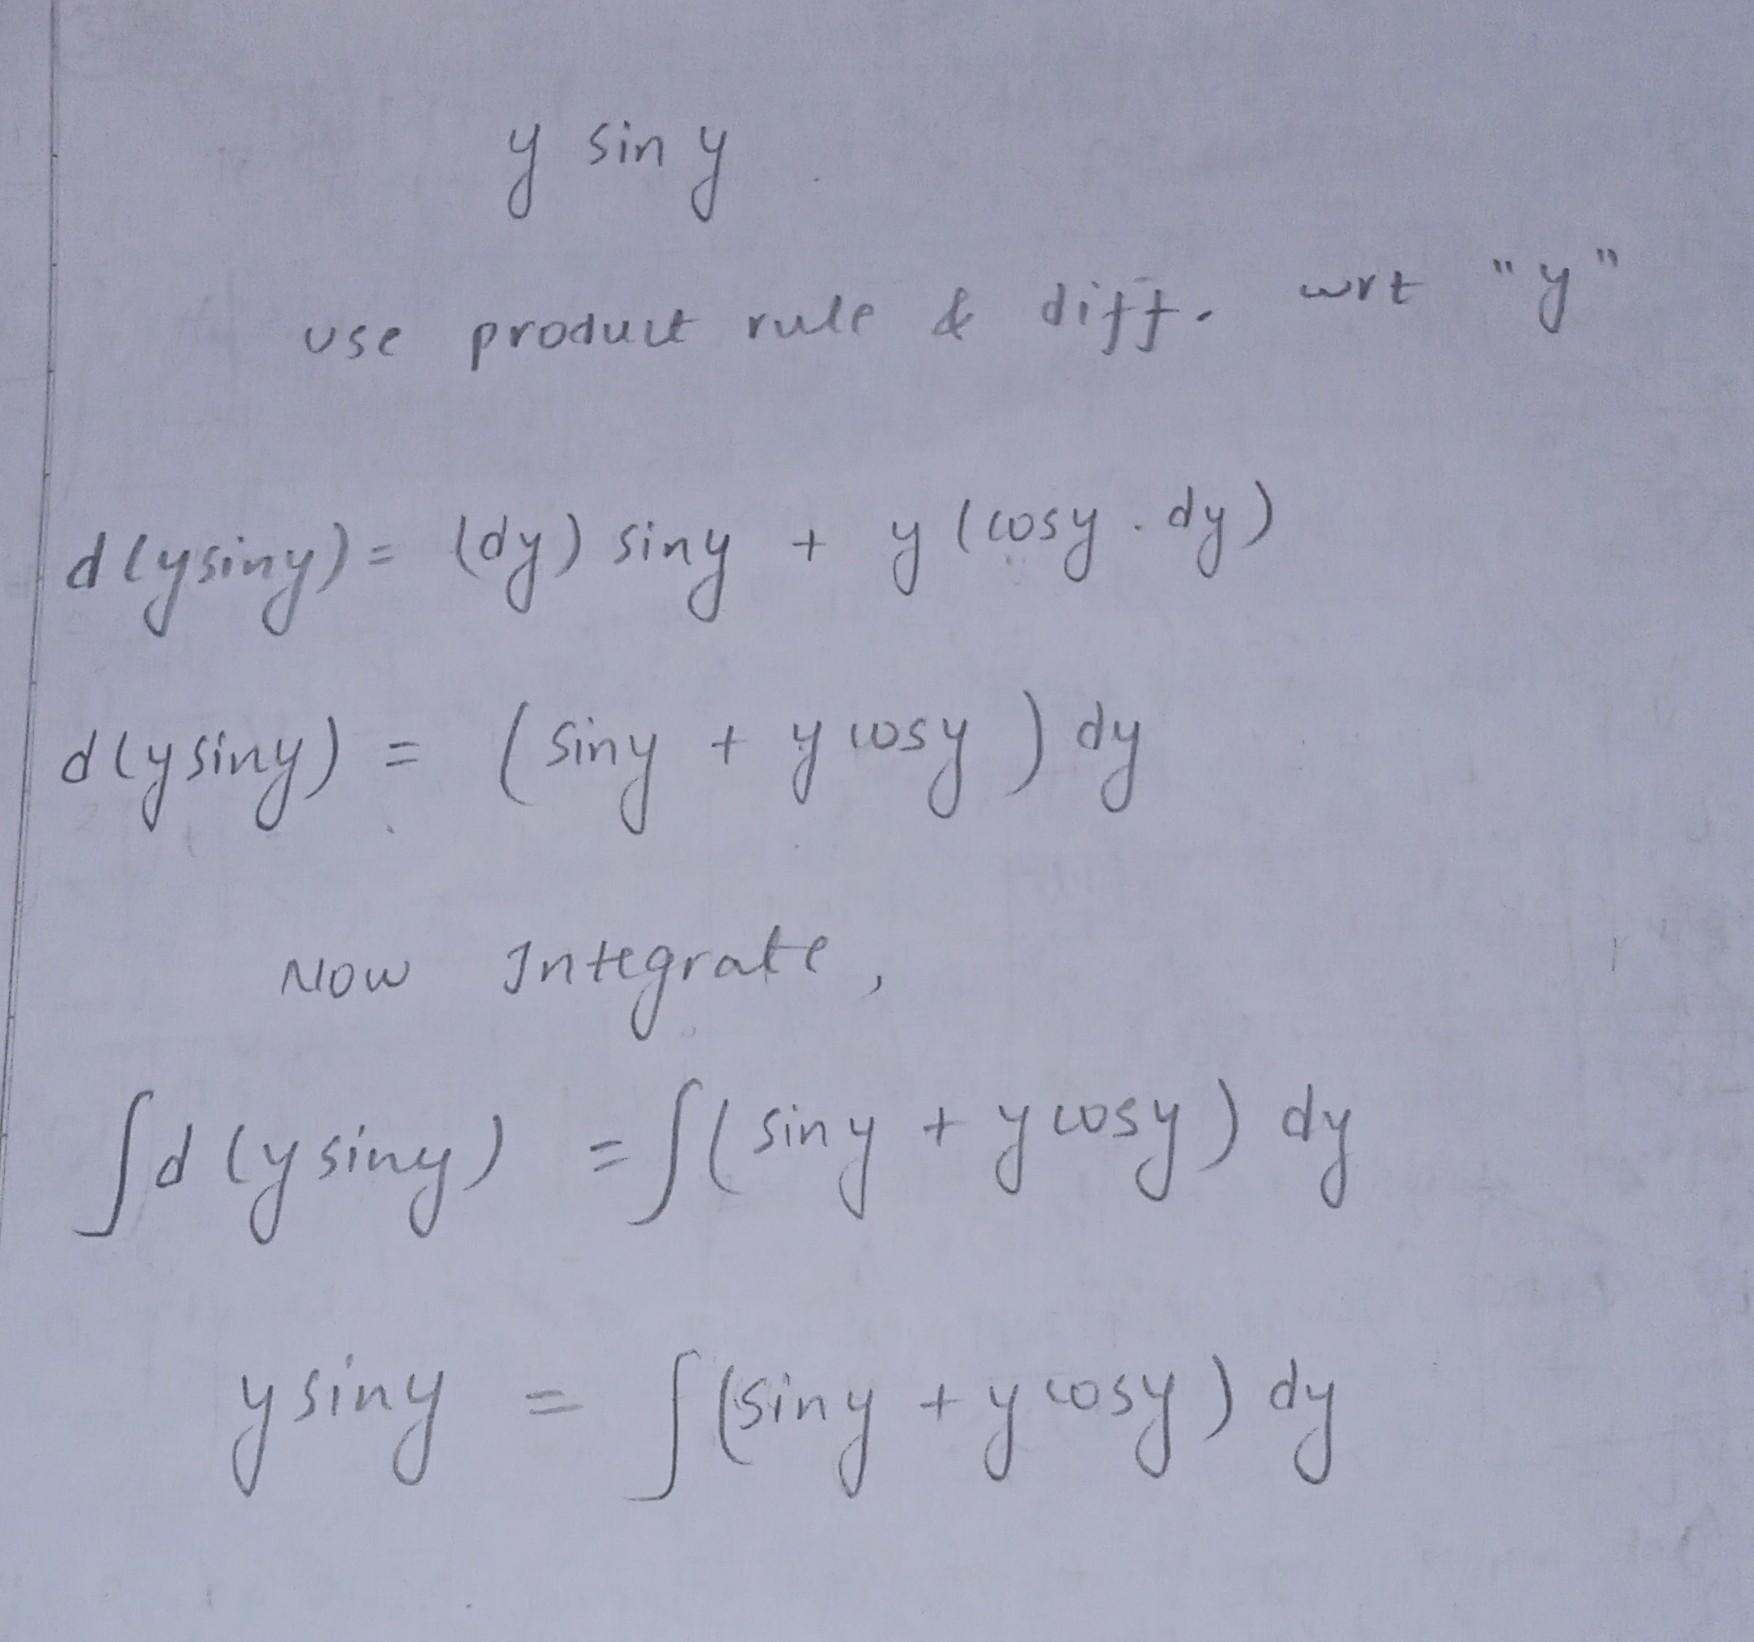 y sin y
use product rule & diff. wrt "y"
d(ysiny) = (dy) siny + y (cosy . dy)
d(ysiny) = (siny + y cosy) dy
Now Integrate,
∫d (y siny) = ∫(siny + y cosy) dy
y siny = ∫(siny + y cosy) dy